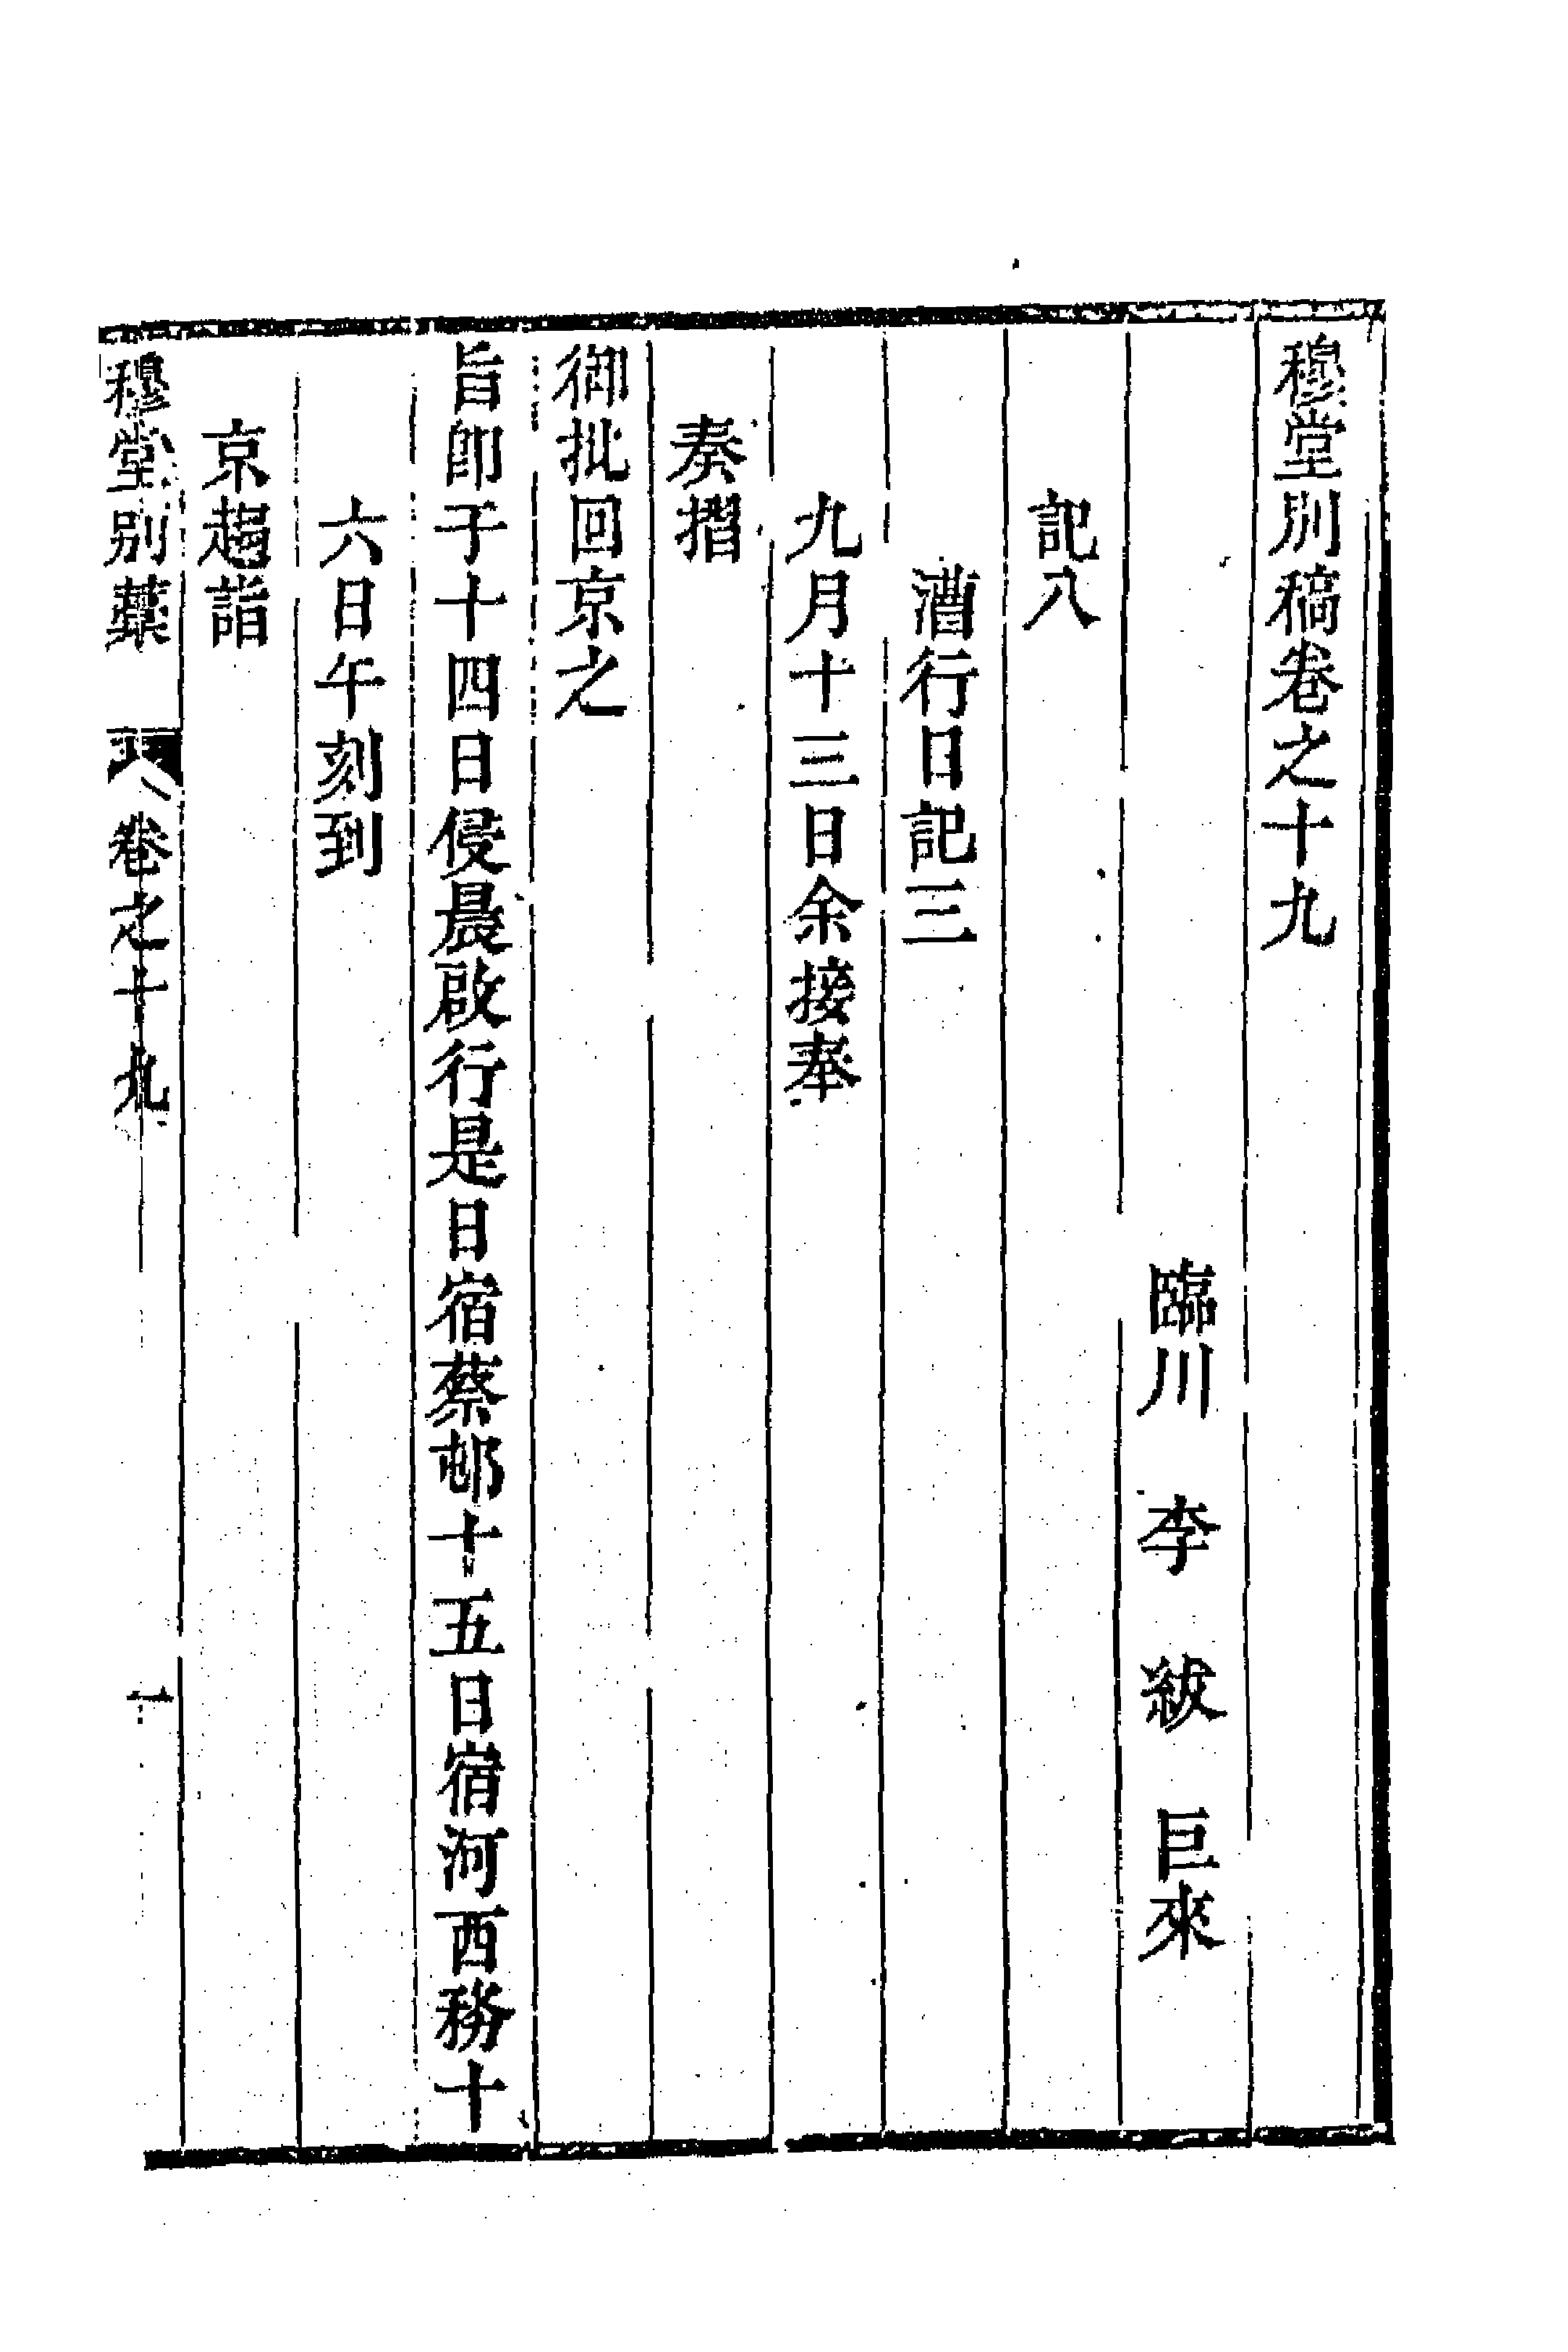 穆堂別稿卷之十九
臨川 李 紱 巨來
記八
漕行日記三
九月十三日余接奉
奏摺
御批回京之
旨卽于十四日侵晨啟行是日宿蔡邨十五日宿河西務十
六日午刻到
京趨詣
穆堂別藁 卷之十九 一